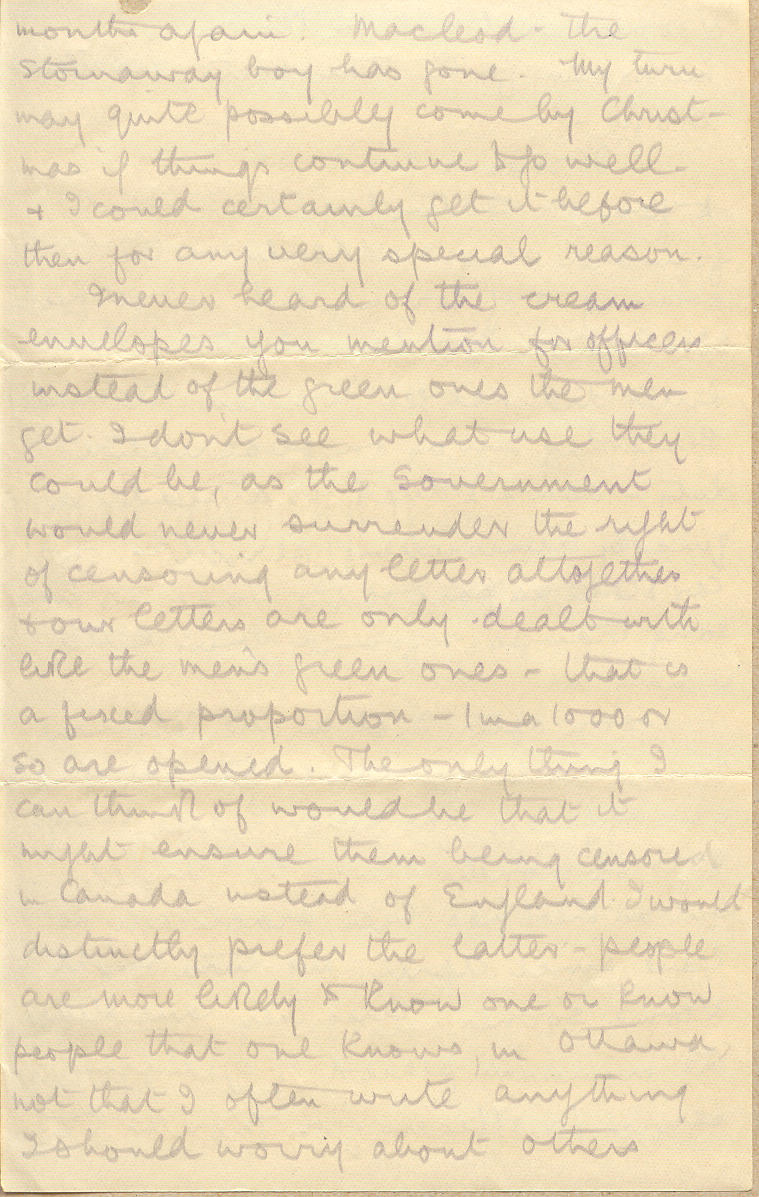 months again! Macleod - the
Stornaway boy has gone. My turn
may quite possibly come by Christ-
mas if things continue to go well.
+ I could certainly get it before
then for any very special reason.
I never heard of the cream
envelopes you mention for officers
instead of the green ones the men
get. I don't see what use they
could be, as the Government
would never surrender the right
of censoring any letter altogether
+ our letters are only dealt with
like the men's green ones - that is
a fixed proportion - 1 in a 1000 or
so are opened. The only thing I
can think of would be that it
might ensure them being censored
in Canada instead of England. I would
distinctly prefer the latter - people
are more likely to know one or know
people that one knows, in Ottawa,
not that I often write anything
I should worry about others